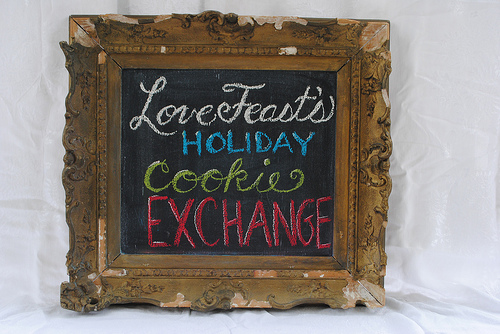 LoveFeast's
HOLIDAY
Cookie
EXCHANGE